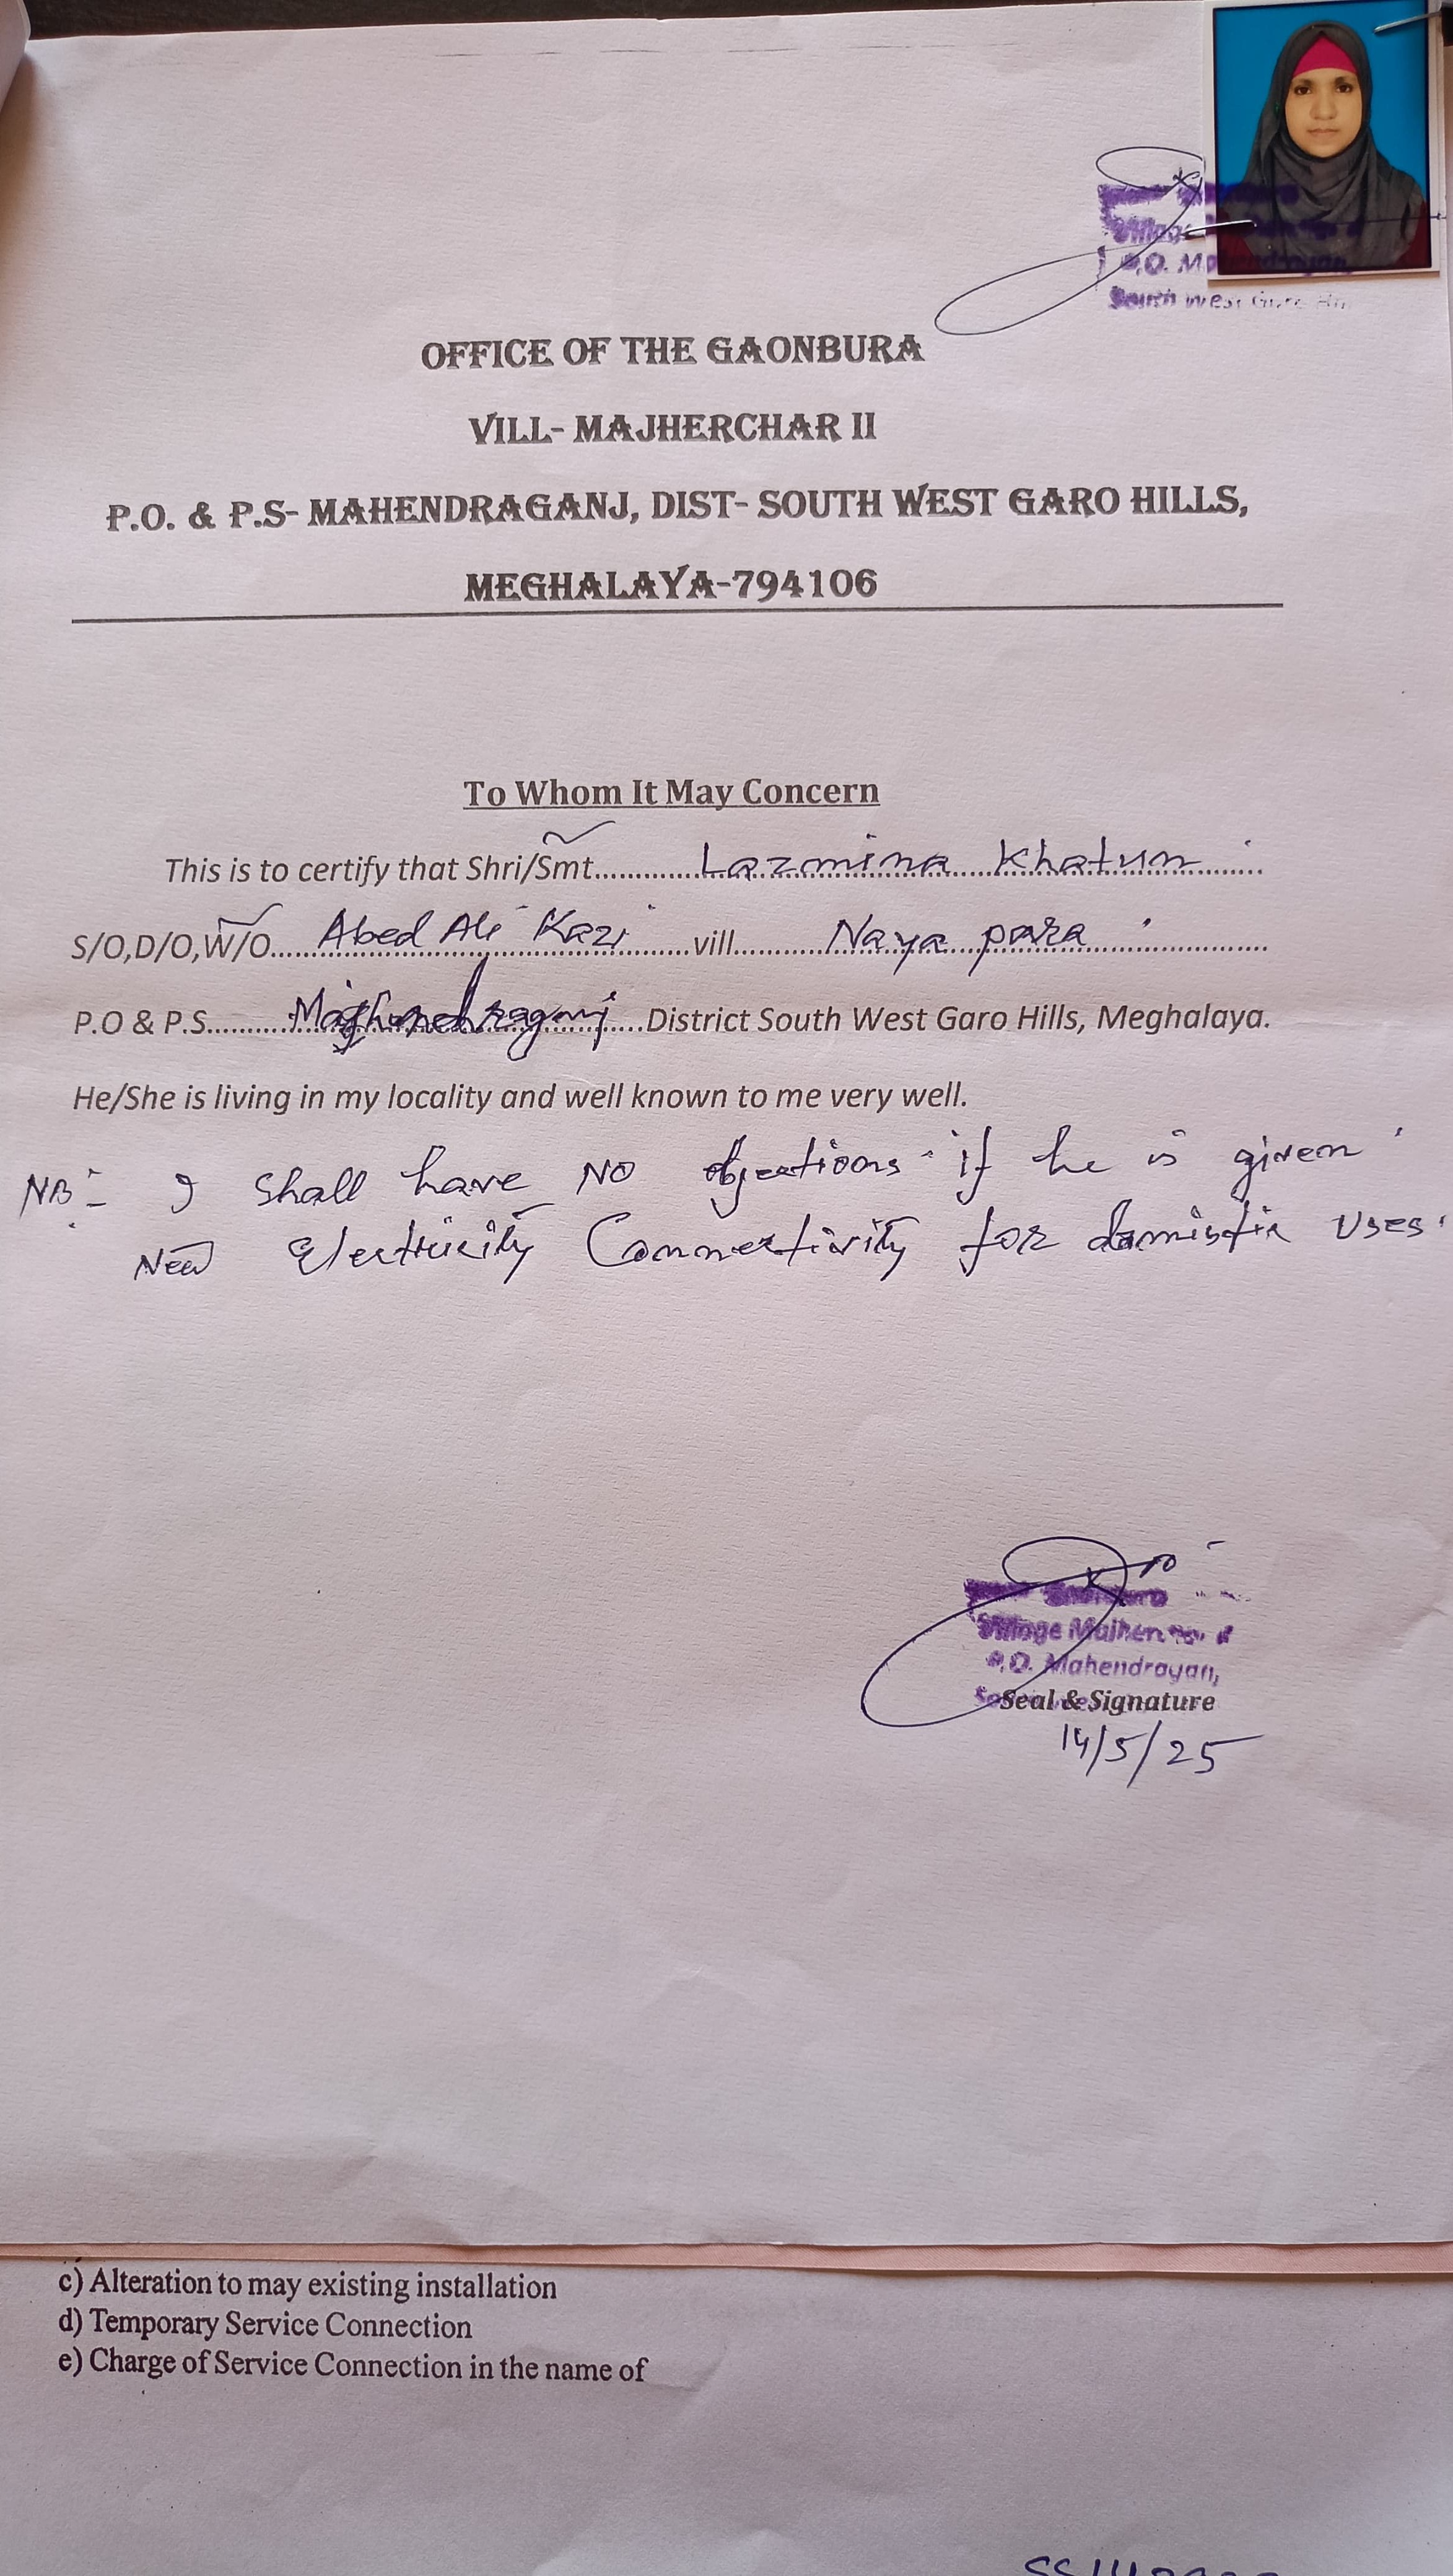 Village
P.O. Mahendragan,
South West Garo Hil
OFFICE OF THE GAONBURA
VILL- MAJHERCHAR II
P.O. & P.S- MAHENDRAGANJ, DIST- SOUTH WEST GARO HILLS,
MEGHALAYA-794106
To Whom It May Concern
This is to certify that Shri/Smt............Lazmina Khatun
S/O,D/O,W/O...Abed Ali Kazi......vill..........Naya para
P.O & P.S..........Mahendraganj....District South West Garo Hills, Meghalaya.
He/She is living in my locality and well known to me very well.
NB:- I shall have NO objections if he is given
New Electricity Connectivity for domistic uses.
Village Majher
P.O. Mahendragan,
Seal & Signature
14/5/25
c) Alteration to may existing installation
d) Temporary Service Connection
e) Charge of Service Connection in the name of